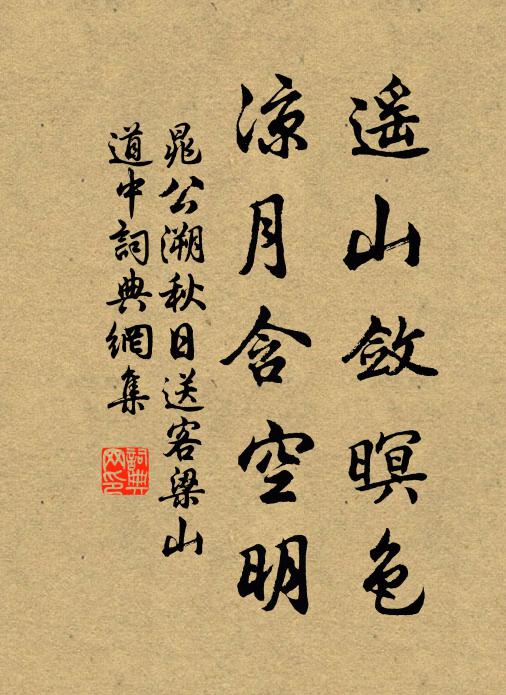 遥山斂暝色
涼月含空明
晁公溯秋日送客梁山
道中詞典網集
詞典
网印